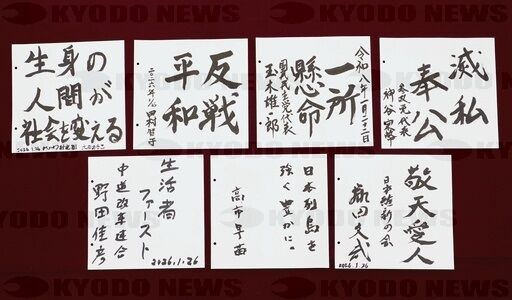 KYODO NEWS KYODO NEWS KYODO NEWS
生身の
人間が
社会を変える
2026 1.26 大石あきこ
反戦
平和
二〇二六年 1/26 田村智子
令和八年一月二十二日
一所
懸命
国民民主党代表
玉木雄一郎
滅私
奉公
参政党代表
神谷宗幣
生活者
ファースト
中道改革連合
野田佳彦
2026.1.26
日本列島を
強く豊かに。
高市早苗
敬天愛人
日本維新の会
藤田文武
2026.1.26
KYODO NEWS KYODO NEWS KYODO NEWS